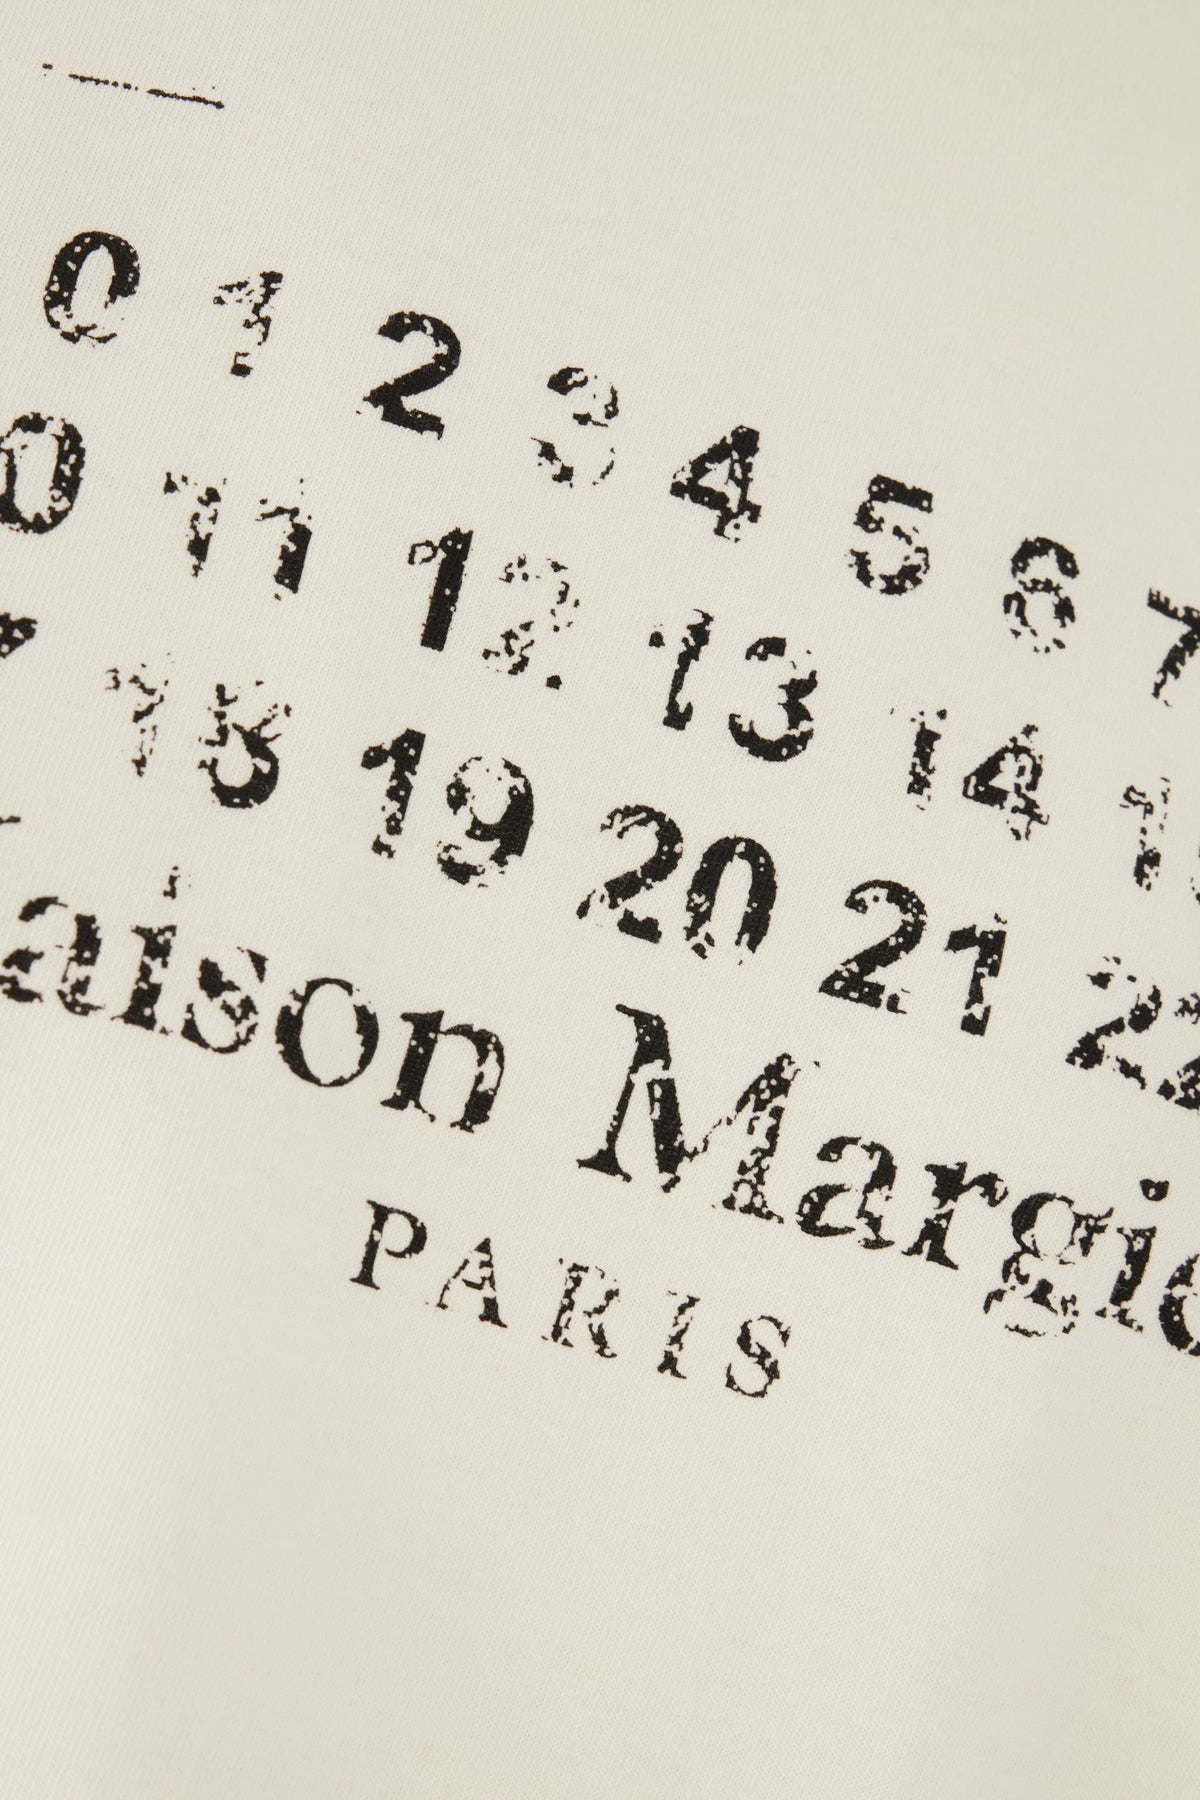 0 1 2 3 4 5 6 7
0 11 12 13 14 1
18 19 20 21 22
aison Margie
PARIS